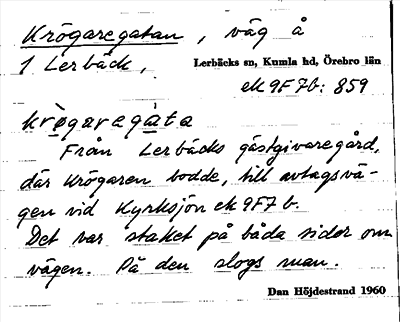 Krögaregatan, väg å
1 Lerbäck, Lerbäcks sn, Kumla hd, Örebro län
ek 9F7b: 859
krø̀garegàta
Från Lerbäcks gästgivaregård,
där krögaren bodde, till avtagsvä-
gen vid Kyrksjön ek 9F7 b.
Det var staket på båda sidor om
vägen. På den slogs man.
Dan Höjdestrand 1960